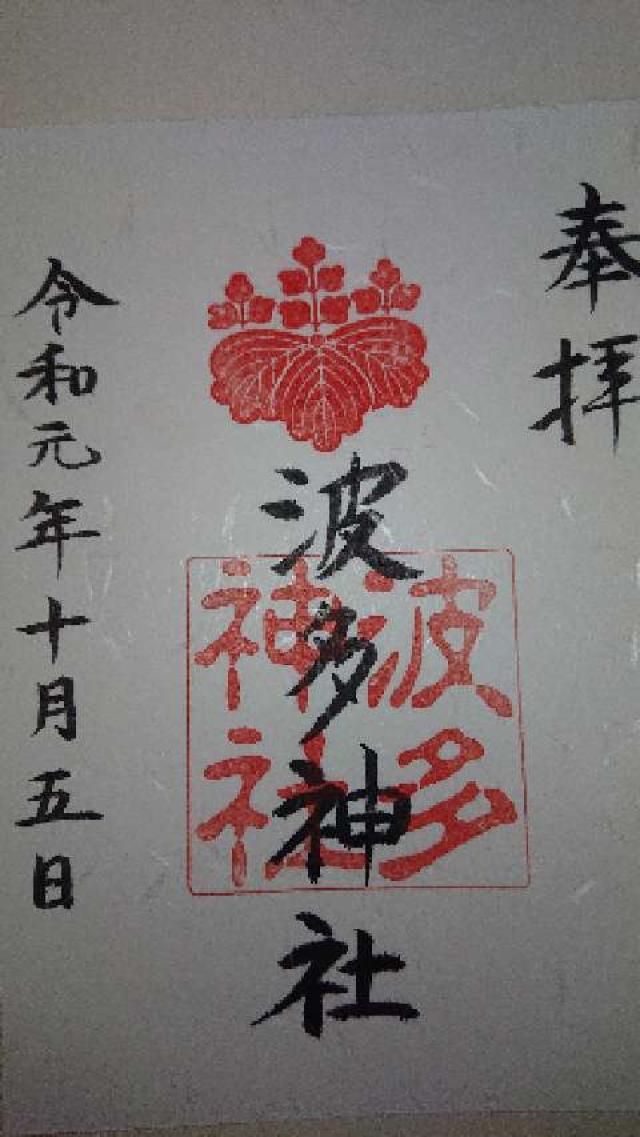 奉拝
波多神社
波多
神社
令和元年十月五日